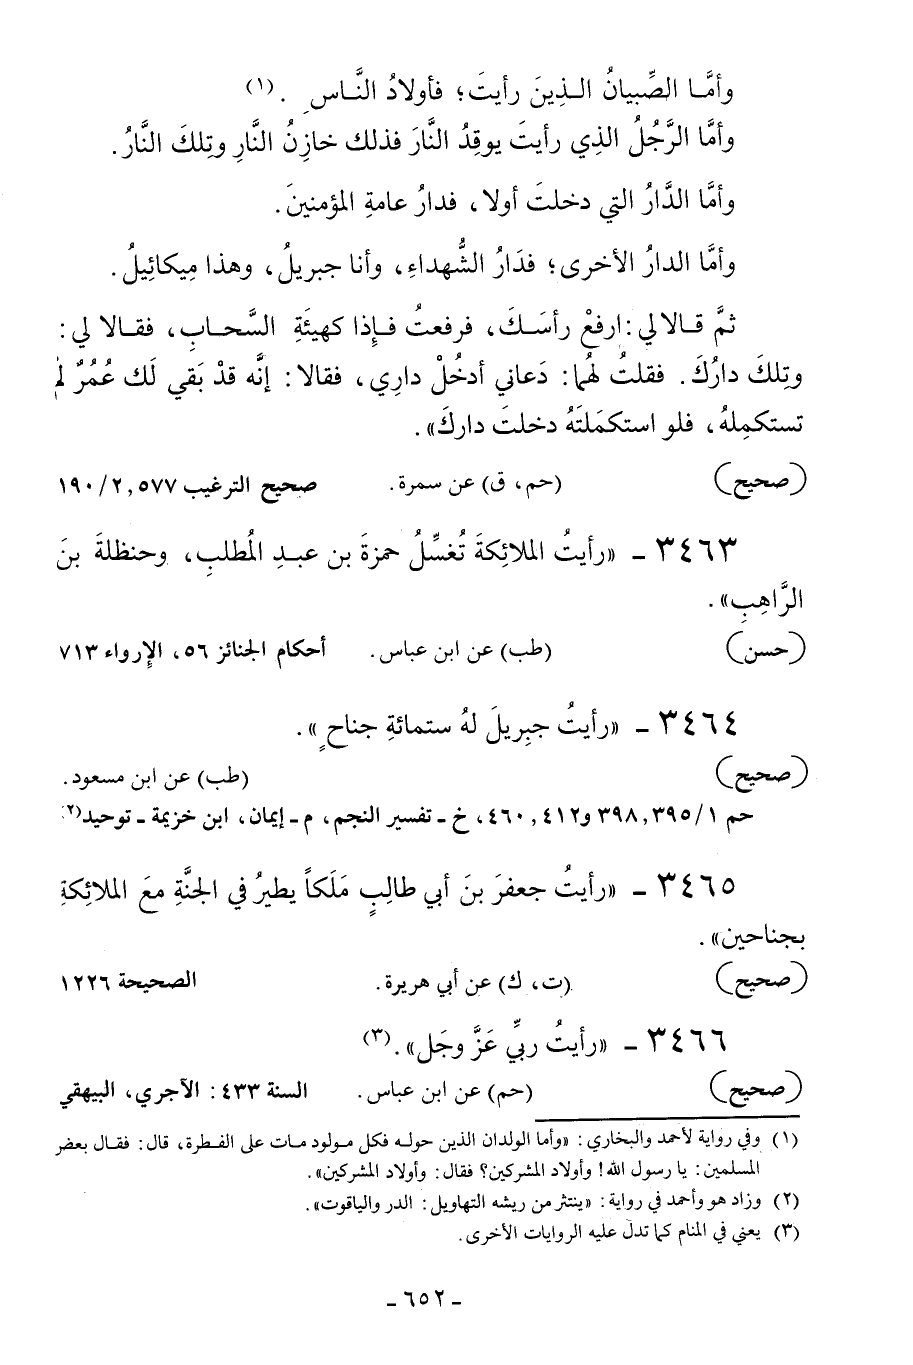 وأمَّا الصِّبيانُ الذِينَ رأيتَ؛ فأولادُ النَّاسِ . (١)
وأمَّا الرَّجُلُ الذِي رأيتَ يوقِدُ النَّارَ فذلك خازِنُ النَّارِ وتِلكَ النَّارُ.
وأمَّا الدَّارُ التي دخلتَ أولا، فدارُ عامةِ المؤمنينَ.
وأمَّا الدارُ الأخرى؛ فدَارُ الشُّهداءِ، وأنا جبريلُ، وهذا مِيكائِيلُ.
ثمَّ قالا لي: ارفعْ رأسَكَ، فرفعتُ فإِذا كهيئَةِ السَّحابِ، فقالا لي:
وتِلكَ دارُكَ. فقلتُ لهُما: دَعاني أدخُلْ دارِي، فقالا: إنَّه قدْ بَقي لَك عُمُرٌ لم
تستكمِلهُ، فلو استكمَلتَهُ دخلتَ داركَ».
(صحيح) (حم، ق) عن سمرة. صحيح الترغيب ٥٧٧, ١٩٠/٢
٣٤٦٣ - «رأيتُ الملائِكةَ تُغسِّلُ حمزةَ بن عبدِ المُطلبِ، وحنظلةَ بنَ
الرَّاهِبِ».
(حسن) (طب) عن ابن عباس. أحكام الجنائز ٥٦، الإرواء ٧١٣
٣٤٦٤ - «رأيتُ جبرِيلَ لهُ ستمائةِ جناحٍ».
(صحيح) (طب) عن ابن مسعود.
حم ٣٩٥/١, ٣٩٨ و٤١٢, ٤٦٠، خ - تفسير النجم، م - إيمان، ابن خزيمة - توحيد(٢).
٣٤٦٥ - «رأيتُ جعفرَ بنَ أبي طالِبٍ مَلَكاً يطيرُ في الجنَّةِ معَ الملائِكةِ
بجناحين».
(صحيح) (ت، ك) عن أبي هريرة. الصحيحة ١٢٢٦
٣٤٦٦ - «رأيتُ ربيِّ عَزَّ وجَل».(٣)
(صحيح) (حم) عن ابن عباس. السنة ٤٣٣: الآجري، البيهقي
(١) وفي رواية لأحمد والبخاري: «وأما الولدان الذين حوله فكل مولود مات على الفطرة، قال: فقال بعض
المسلمين: يا رسول الله! وأولاد المشركين؟ فقال: وأولاد المشركين».
(٢) وزاد هو وأحمد في رواية: «ينتثر من ريشه التهاويل: الدر والياقوت».
(٣) يعني في المنام كما تدل عليه الروايات الأخرى.
- ٦٥٢ -